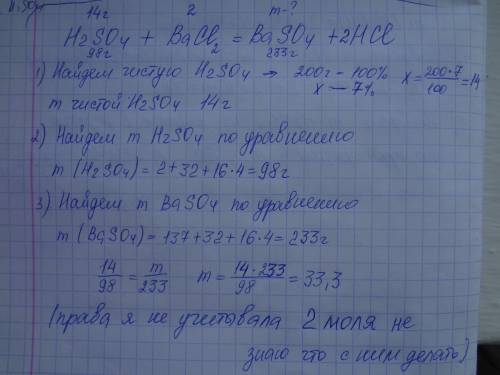 14г 2 m-?
H₂SO₄ + BaCl₂ = BaSO₄ + 2HCl
98г 233г
1) Найдем чистую H₂SO₄ → 200г - 100% x = 200·7/100 = 14
x — 7%
m чистой H₂SO₄ 14 г
2) Найдем m H₂SO₄ по уравнению
m (H₂SO₄) = 2+32+16·4=98г
3) Найдем m BaSO₄ по уравнению
m (BaSO₄) = 137+32+16·4=233г
14/98 = m/233 m = 14·233/98 = 33,3
(права я не учитывала 2 моля не
знаю что с ним делать)